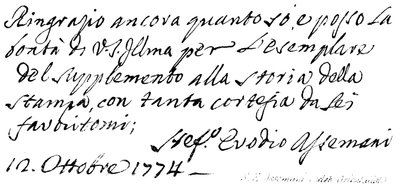 Ringrazio ancora quanto sò, e posso la
bontà di V. S. Illma per L'esemplare
del supplemento alla storia della
stampa, con tanta cortesia da Lei
favoritomi;
Stef.º Evodio Assemani
12. Ottobre 1774